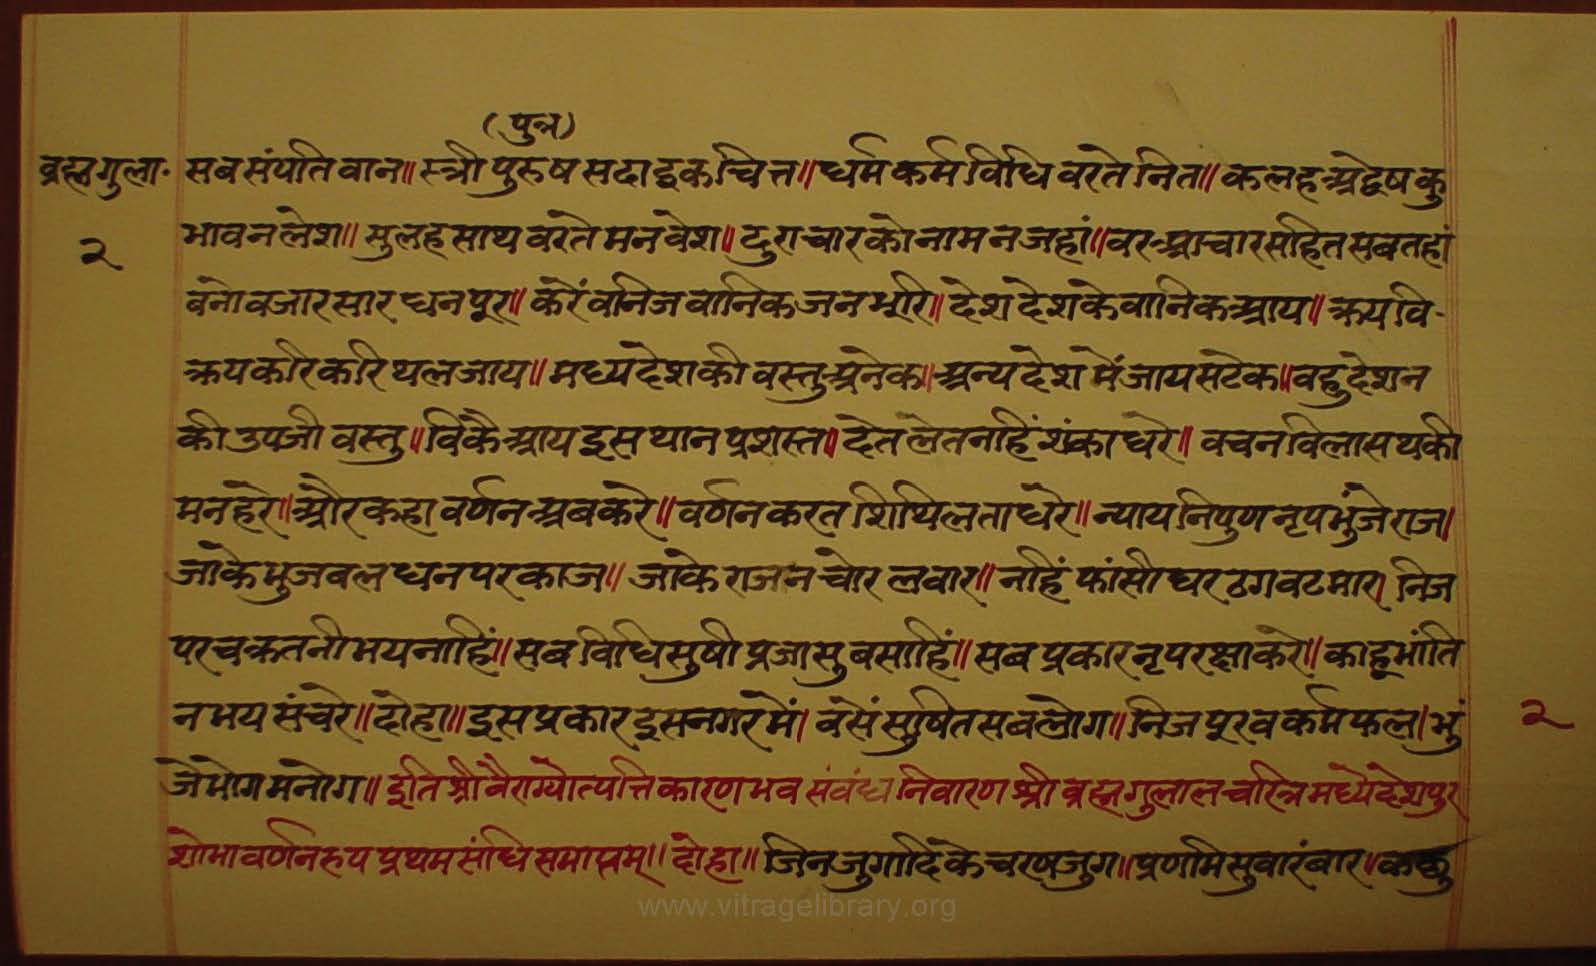 (पुत्र)
ब्रह्मगुला॰ सब संपति वान॥ स्त्री पुरुष सदा इकचित्त॥ धर्म कर्म विधि वरते नित॥ कलह अद्वेष कु
२ भाव न लेश॥ सुलह साथ वरते मन वेश॥ दुराचार को नाम न जहां॥ वर आचार सहित सब तहां
वनो वजार सार धन पूर॥ करें वनिज वानिक जन भूरि॥ देश देश के वानिक आय॥ क्रय वि-
क्रय करि करि थल जाय॥ मध्य देश की वस्तु अनेक॥ अन्य देश में जाय सटेक॥ वहु देशन
की उपजी वस्तु॥ विकै आय इस थान प्रशस्त॥ देत लेत नाहिं शंका धरे॥ वचन विलास थकी
मन हरे॥ और कहा वर्णन अब करे॥ वर्णन करत शिथिलता धरे॥ न्याय निपुण नृप भुंजे राज।
जाके भुजवल धन पर काज॥ जाके राज न चोर लवार॥ नहिं फांसी धर ठग वटमार। निज
पर चक्र तनी भय नाहिं॥ सब विधि सुषी प्रजा सु बसाहिं॥ सब प्रकार नृप रक्षा करे॥ काहू भांति
न भय संचरे॥ दोहा॥ इस प्रकार इस नगर में। वसें सुषित सब लोग॥ निज पूरव कर्म फल। भुं २
जे भोग मनोग॥ इति श्री वैराग्योत्पत्ति कारण भव संवंध निवारण श्री ब्रह्मगुलाल चरित्र मध्ये देशपुर
शोभा वर्णन रूप प्रथम संधि समाप्तम्॥ दोहा॥ जिन जुगादि के चरण जुग॥ प्रणमि सु वारंवार॥ कछु
www.vitragelibrary.org